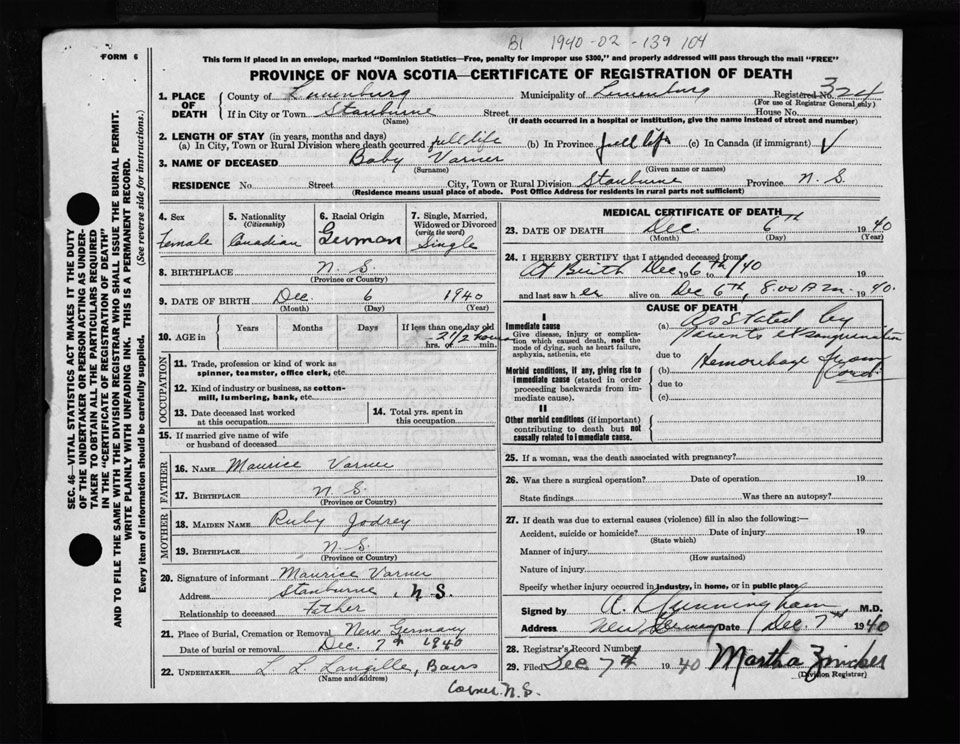 B1 1940-02-139 104
FORM 6
This form if placed in an envelope, marked "Dominion Statistics—Free, penalty for improper use $300," and properly addressed will pass through the mail "FREE"
PROVINCE OF NOVA SCOTIA—CERTIFICATE OF REGISTRATION OF DEATH
1. PLACE OF DEATH County of Lunenburg Municipality of Lunenburg Registered No. 324
(For use of Registrar General only)
If in City or Town Stanburne Street House No.
(Name) (If death occurred in a hospital or institution, give the name instead of street and number)
2. LENGTH OF STAY (in years, months and days)
(a) In City, Town or Rural Division where death occurred full life (b) In Province full life (c) In Canada (if immigrant) √
3. NAME OF DECEASED Baby Varner
(Surname) (Given name or names)
RESIDENCE No. Street City, Town or Rural Division Stanburne Province N. S
(Residence means usual place of abode. Post Office Address for residents in rural parts not sufficient)
4. Sex Female
5. Nationality (Citizenship) Canadian
6. Racial Origin German
7. Single, Married, Widowed or Divorced (write the word) Single
8. BIRTHPLACE N. S.
(Province or Country)
9. DATE OF BIRTH Dec. 6 1940
(Month) (Day) (Year)
10. AGE in Years Months Days If less than one day old
2 1/2 hours
hrs. or min.
OCCUPATION
11. Trade, profession or kind of work as
spinner, teamster, office clerk, etc.
12. Kind of industry or business, as cotton-
mill, lumbering, bank, etc.
13. Date deceased last worked
at this occupation
14. Total yrs. spent in
this occupation
15. If married give name of wife
or husband of deceased
FATHER
16. NAME Maurice Varner
17. BIRTHPLACE N. S.
(Province or Country)
MOTHER
18. MAIDEN NAME Ruby Jodrey
19. BIRTHPLACE N. S.
(Province or Country)
20. Signature of informant Maurice Varner
Address Stanburne, N. S.
Relationship to deceased Father
21. Place of Burial, Cremation or Removal New Germany
Date of burial or removal Dec. 7th 1940
22. UNDERTAKER L. L. Langille, Barss
(Name and address)
Corner N. S.
MEDICAL CERTIFICATE OF DEATH
23. DATE OF DEATH Dec. 6th 1940
(Month) (Day) (Year)
24. I HEREBY CERTIFY that I attended deceased from
At Birth Dec 6th/40 19 to 19
and last saw her alive on Dec 6th, 8.00 A m. 1940.
CAUSE OF DEATH
I
Immediate cause
Give disease, injury or complication which caused death, not the mode of dying, such as heart failure, asphyxia, asthenia, etc
Morbid conditions, if any, giving rise to immediate cause (stated in order proceeding backwards from immediate cause).
II
Other morbid conditions (if important) contributing to death but not causally related to immediate cause.
(a) As stated by
parents exsanguination
due to
(b) Hemorrhage from
Cord.
due to
(c)
25. If a woman, was the death associated with pregnancy?
26. Was there a surgical operation? Date of operation 19
State findings Was there an autopsy?
27. If death was due to external causes (violence) fill in also the following:—
Accident, suicide or homicide? Date of injury 19
(State which)
Manner of injury
(How sustained)
Nature of injury
Specify whether injury occurred in industry, in home, or in public place
Signed by A. R. Cunningham M.D.
Address New Germany Date Dec. 7th 1940
28. Registrar's Record Number
29. Filed Dec 7th 1940 Martha Zwicker
(Division Registrar)
SEC. 46—VITAL STATISTICS ACT MAKES IT THE DUTY
OF THE UNDERTAKER OR PERSON ACTING AS UNDER-
TAKER TO OBTAIN ALL THE PARTICULARS REQUIRED
IN THE "CERTIFICATE OF REGISTRATION OF DEATH"
AND TO FILE THE SAME WITH THE DIVISION REGISTRAR WHO SHALL ISSUE THE BURIAL PERMIT.
WRITE PLAINLY WITH UNFADING INK. THIS IS A PERMANENT RECORD.
Every item of information should be carefully supplied. (See reverse side for instructions.)